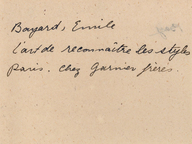 Bayard, Emile
L'art de reconnaître les styles
Paris. Chez Garnier frères.